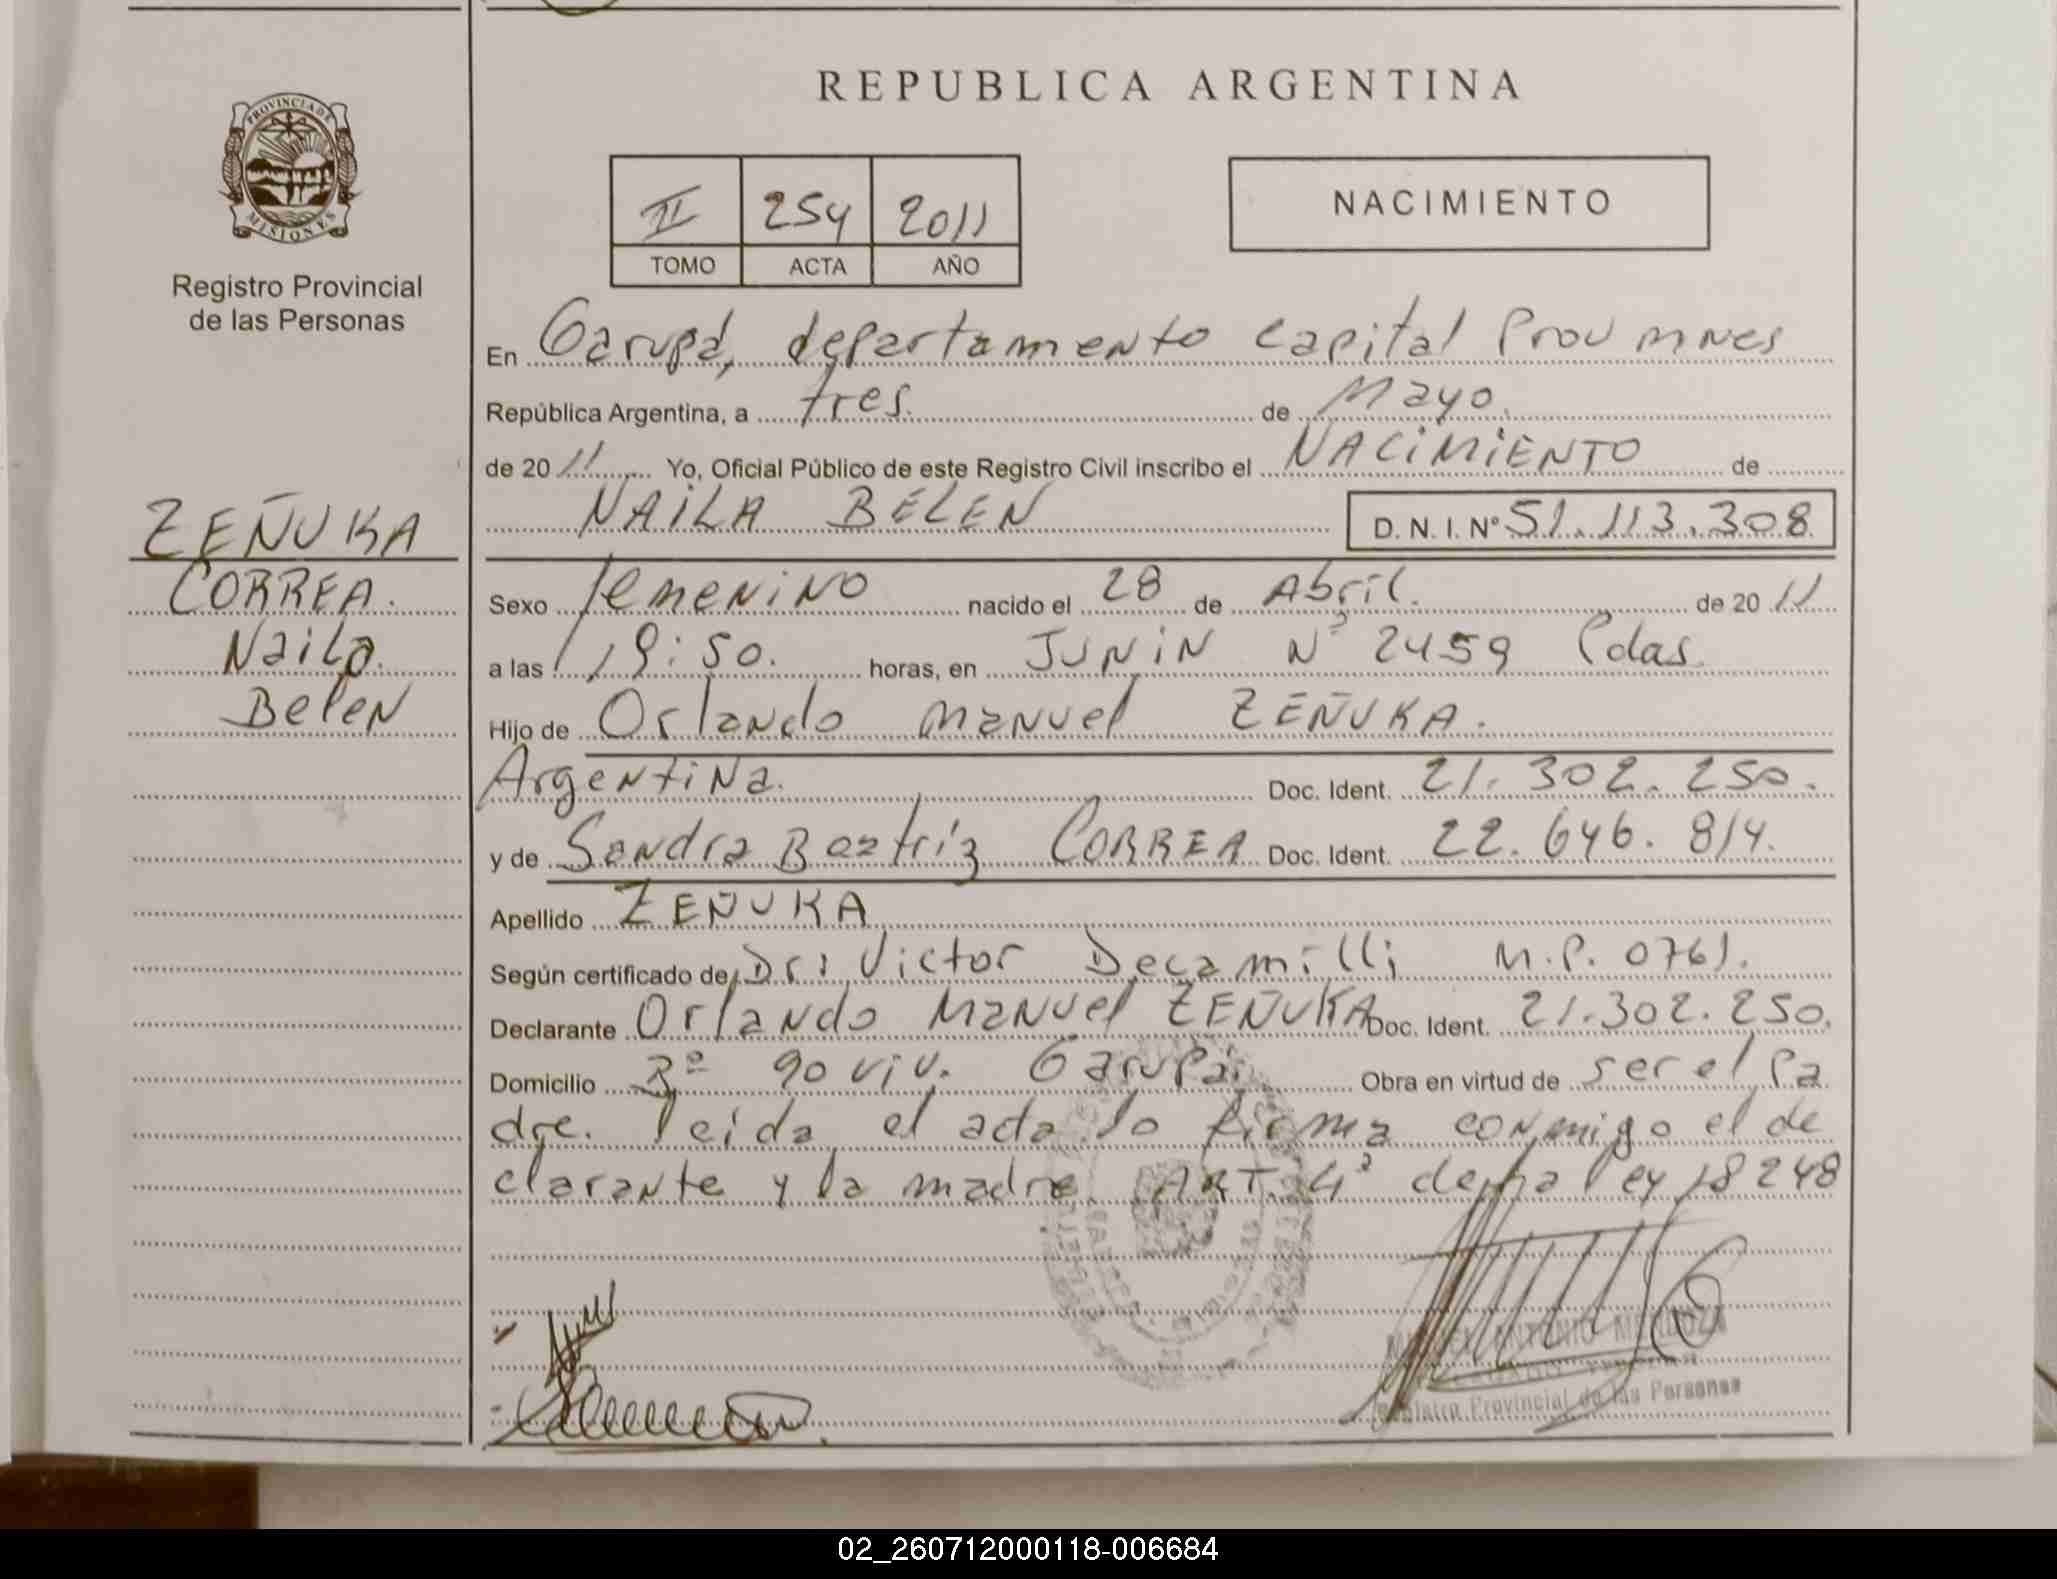 REPUBLICA ARGENTINA
PROVINCIA DE
MISIONES
Registro Provincial
de las Personas
II 254 2011
TOMO ACTA AÑO
NACIMIENTO
En Garupá, departamento Capital Prov Mnes
República Argentina, a tres. de Mayo.
de 2011 Yo, Oficial Público de este Registro Civil inscribo el NACIMIENTO de
NAILA BELEN D. N. I. Nº 51.113.308
ZEÑUKA
CORREA.
Naila
Belen
Sexo femenino nacido el 28 de Abril. de 2011
a las 19:50. horas, en JUNIN Nº 2459 Pdas.
Hijo de Orlando Manuel ZEÑUKA.
Argentina. Doc. Ident. 21.302.250.
y de Sandra Beatriz CORREA Doc. Ident. 22.646.814.
Apellido ZEÑUKA
Según certificado de Dr: Victor Decamilli M.P. 0761.
Declarante Orlando Manuel ZEÑUKA Doc. Ident. 21.302.250.
Domicilio Bº 90 viv. Garupá. Obra en virtud de ser el pa
dre. leida el acta lo firma conmigo el de
clarante y la madre. ART. 4º de la ley 18248
ANTONIO
Registro Provincial de las Personas
02_260712000118-006684